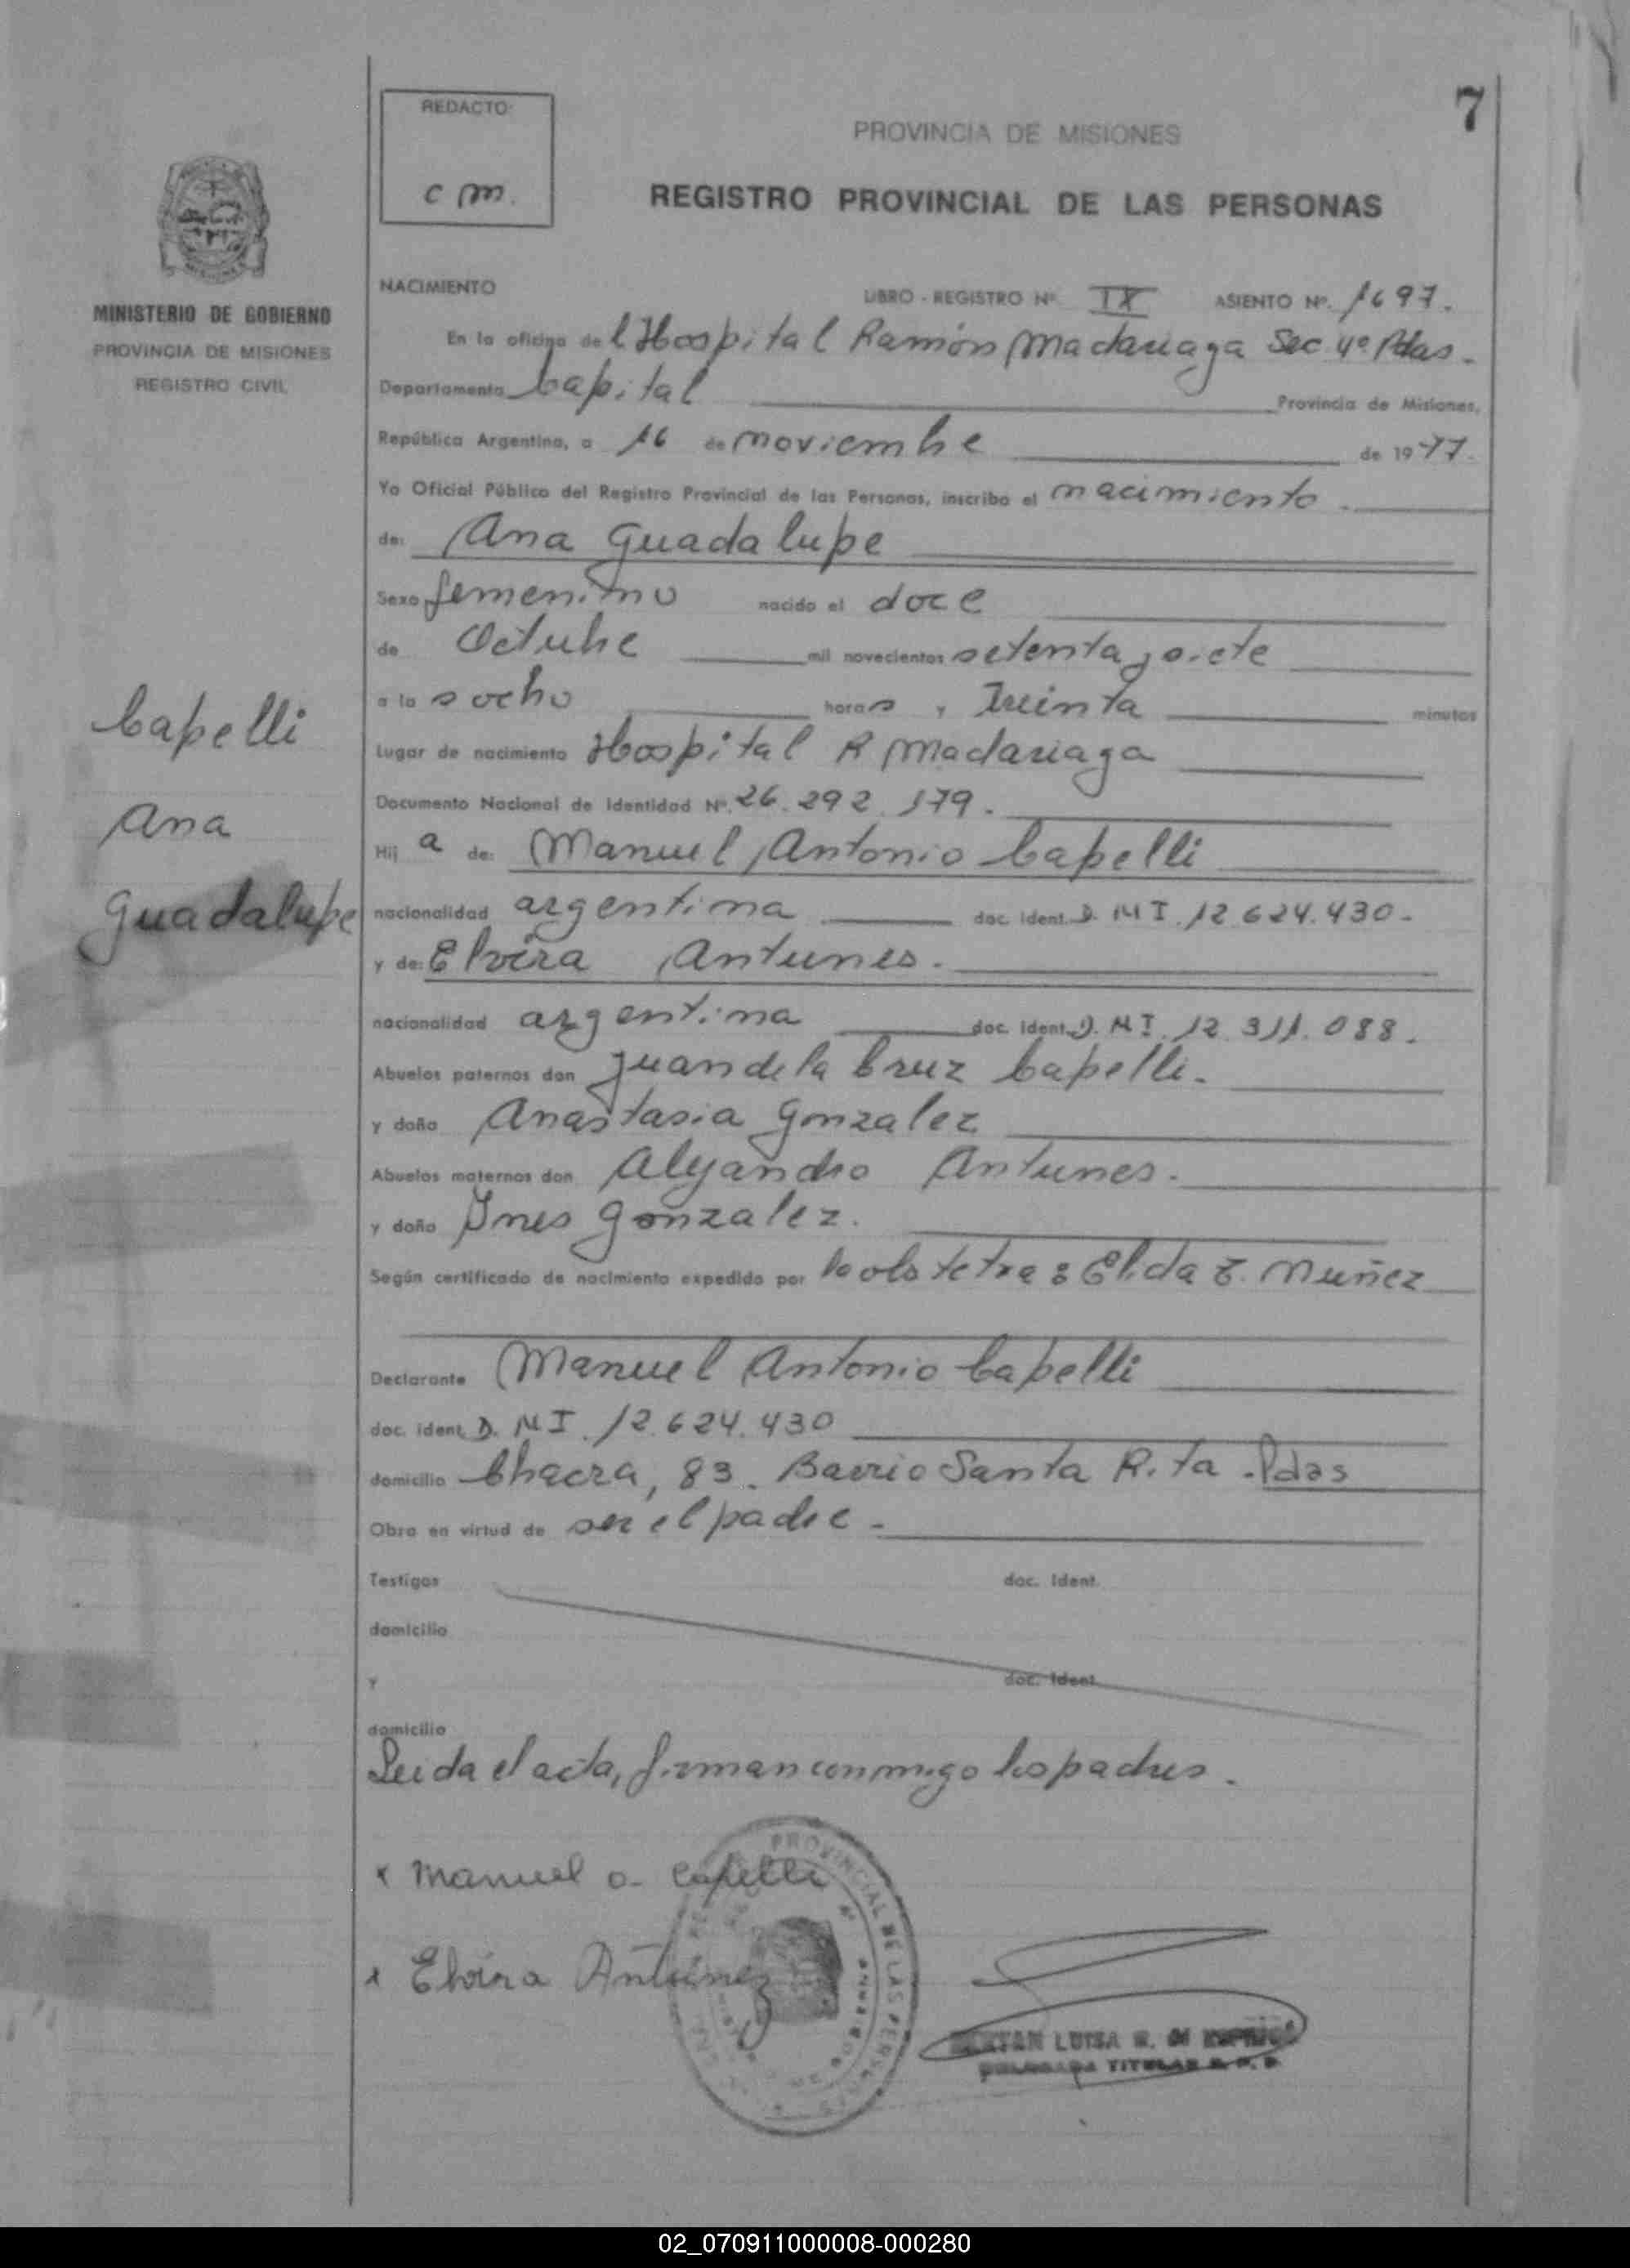 7
REDACTO:
c m.
PROVINCIA DE MISIONES
REGISTRO PROVINCIAL DE LAS PERSONAS
MINISTERIO DE GOBIERNO
PROVINCIA DE MISIONES
REGISTRO CIVIL
NACIMIENTO LIBRO - REGISTRO Nº IX ASIENTO Nº. 1697.
En la oficina del Hospital Ramón Madariaga Sec. 4º Pdas.
Departamento Capital Provincia de Misiones,
República Argentina, a 16 de noviembre de 1977.
Yo Oficial Público del Registro Provincial de las Personas, inscribo el nacimiento.
de: Ana Guadalupe
Sexo femenino nacido el doce
de Octubre mil novecientos setenta y siete
a las ocho horas y Treinta minutos
Lugar de nacimiento Hospital R Madariaga
Documento Nacional de Identidad Nº. 26.292.179.
Capelli
Ana
Guadalupe
Hij a de: Manuel Antonio Capelli
nacionalidad argentina doc. Ident. D.N.I. 12.624.430.
y de: Elvira Antunes.
nacionalidad argentina doc. Ident. D.N.I. 12.311.088.
Abuelos paternos don Juan de la Cruz Capelli.
y doña Anastasia Gonzalez
Abuelos maternos don Alejandro Antunes.
y doña Ines Gonzalez.
Según certificado de nacimiento expedido por la obstetra: Elida E. Muñez
Declarante Manuel Antonio Capelli
doc. ident. D.N.I. 12.624.430
domicilio Chacra, 83. Barrio Santa Rita. Pdas
Obra en virtud de ser el padre.
Testigos doc. Ident.
domicilio
y doc. Ident.
domicilio
Leida el acta, firman conmigo los padres.
x Manuel a. Capelli
x Elvira Antunez
PROVINCIAL DE LAS PERSONAS
LUISA
TITULAR
02_070911000008-000280